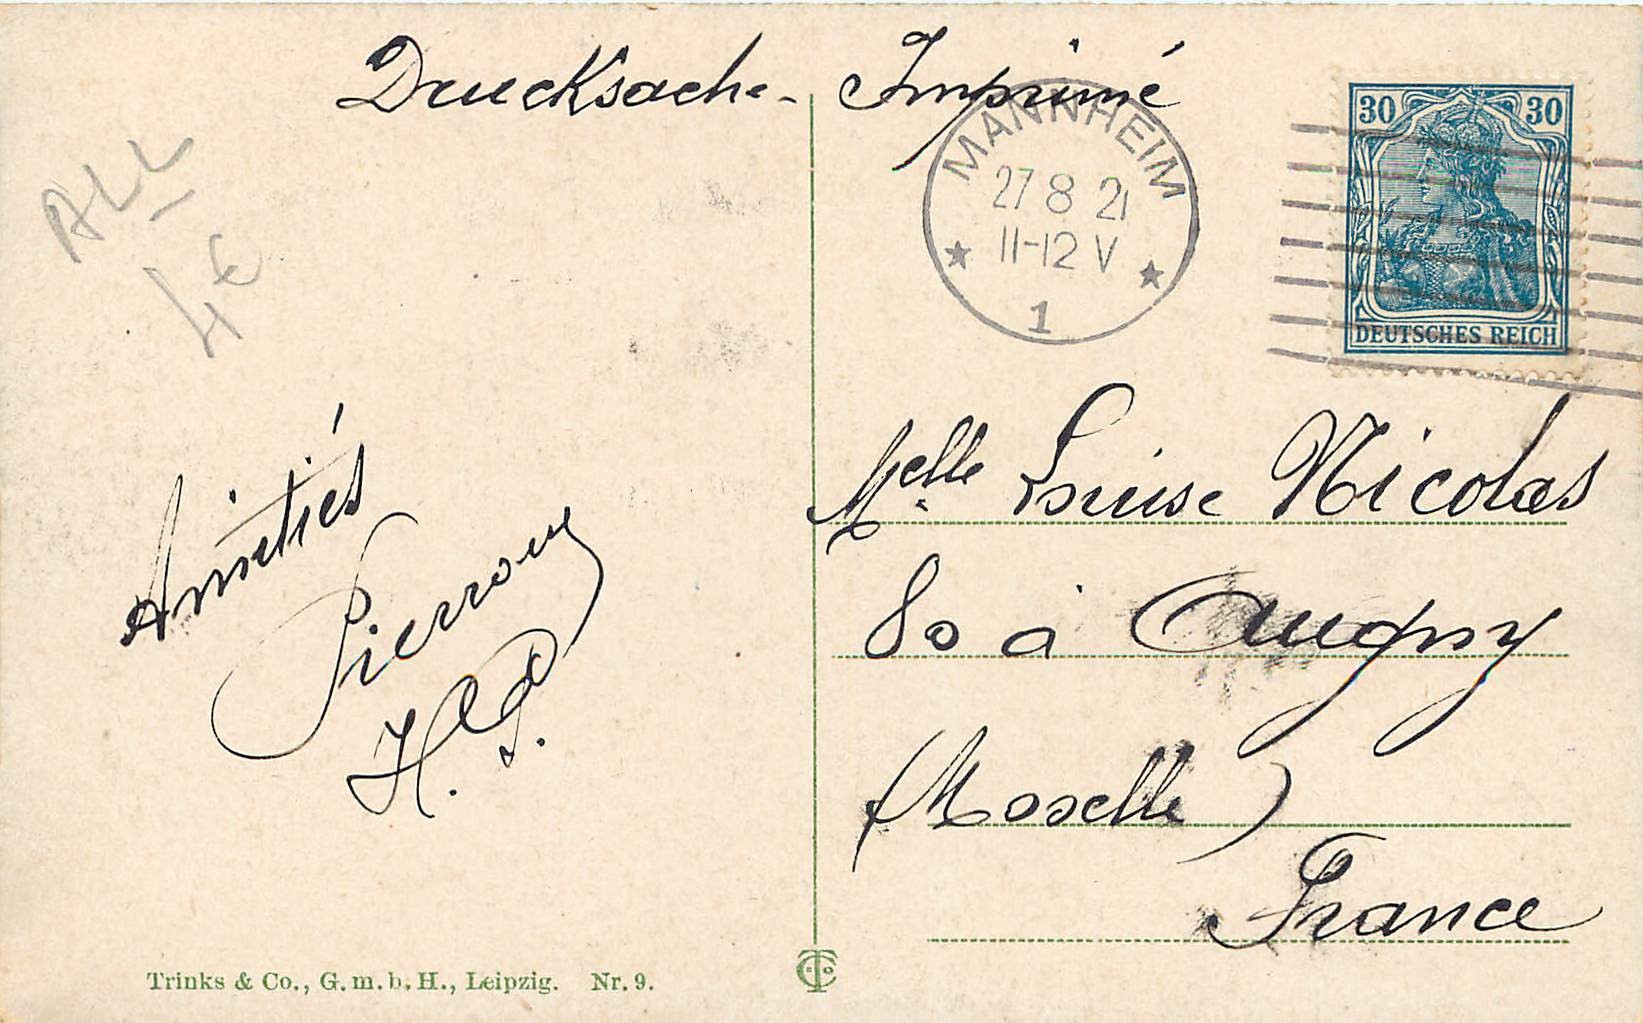 Drucksache - Imprimé
MANNHEIM
27 8 21
11-12 V
1
30 30
DEUTSCHES REICH
ALL
4€
Amitiés
Pierrong
H.P.
Melle Louise Nicolas
80 à Augny
(Moselle)
France
Trinks & Co., G.m.b.H., Leipzig. Nr. 9.